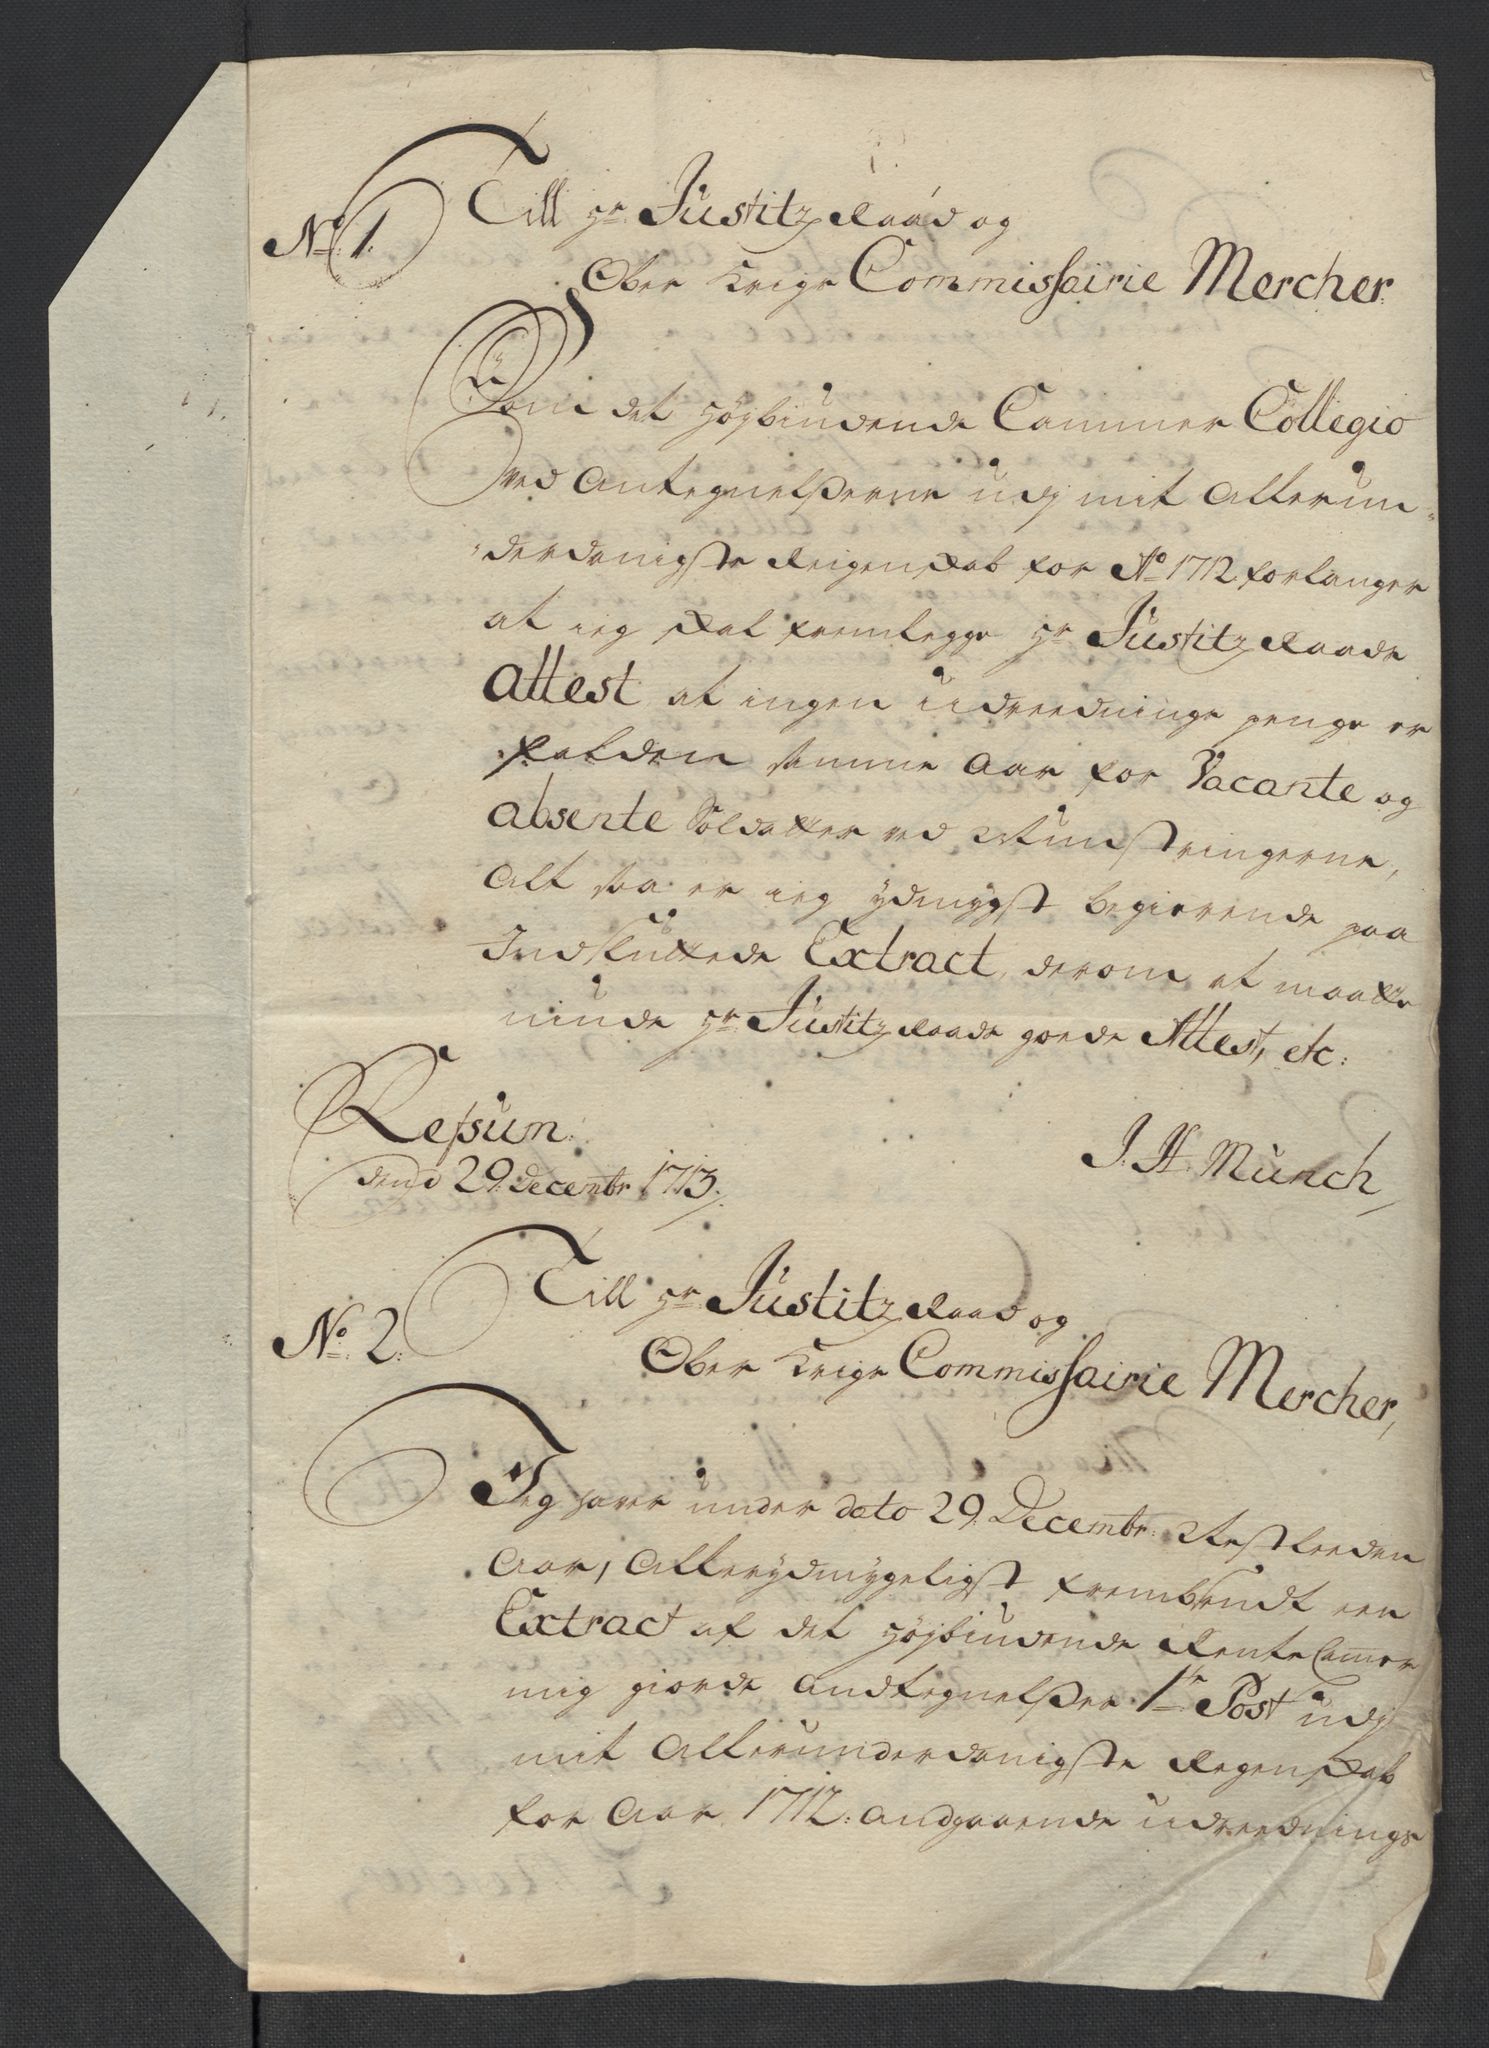 No: 1.
Till Hr: Justitz Raad og
Ober Krigs Commissairie Mercher.
Som det Høybiudende Cammer Collegio
ved Antegnelßerne udj mit Allerun-
derdanigste Reigenskab for Ao 1712 forlanger
at ieg skal fremlegge Hr: Justitz Raads
Attest at ingen udreednings penge er
falden samme Aar for Vacante og
absente Soldatter ved Munstringerne,
Alt saa er ieg ydmygst begierende paa
Indsluttede Extract, derom at maatte
niude Hr: Justitz Raads goede Attest, etc:
Refsum.
dend 29. Decembr 1713.
J. H: Munch
No: 2.
Till Hr: Justitz Raad og
Ober Krigs Commissairie Mercher,
Jeg haver under dato 29. Decembr: Nestleeden
Aar, Allerydmygeligst frembsendt een
Extract af det Høybiudende Rente Camer
mig giorde Andtegnelßer 1te Post udj
mit Allerunderdanigste Regenskab
for Aar 1712: andgaaende udreednings